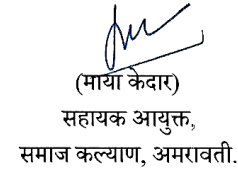 (माया केदार)
सहायक आयुक्त,
समाज कल्याण, अमरावती.